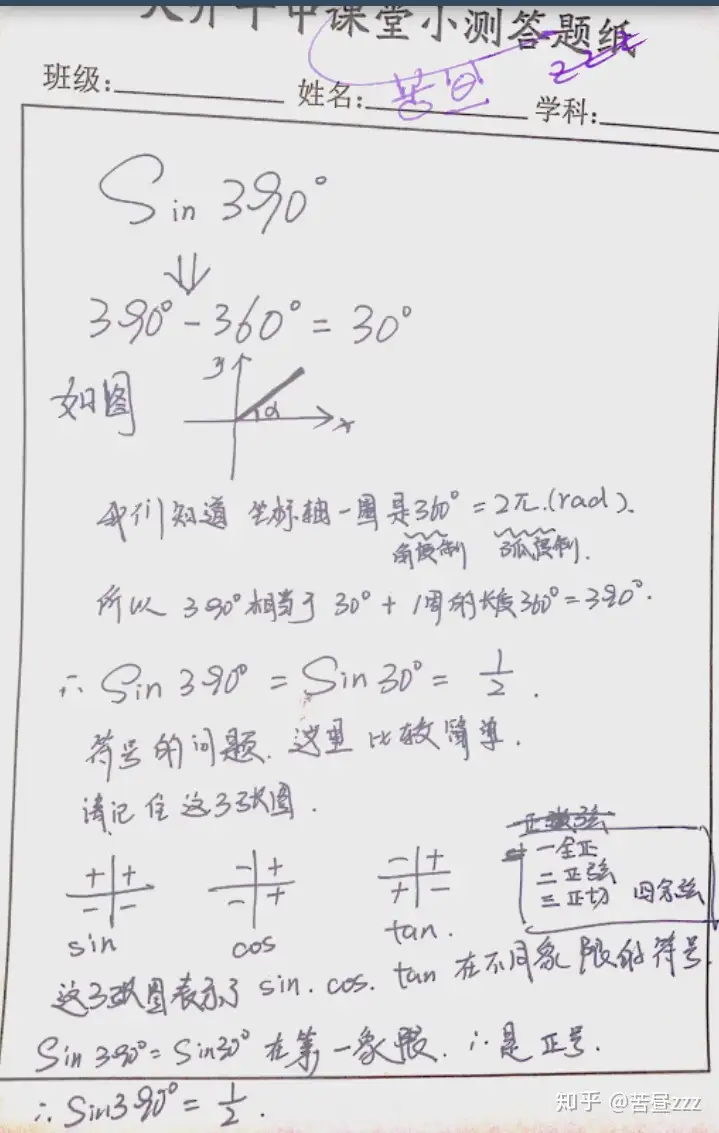 大开十中课堂小测答题纸
zzz
班级: 姓名: 苦昼 学科:
Sin 390°
⇓
390° - 360° = 30°
如图
y
α
x
我们知道 坐标轴一周是360° = 2π.(rad).
角度制 弧度制.
所以 390°相当于 30° + 1周的长度360° = 390°.
∴ Sin 390° = Sin 30° = 1/2.
符号的问题. 这里比较简单.
请记住这3张图.
正弦
一全正
二正弦
三正切 四余弦
+ + - + - +
- - - + + -
sin cos tan.
这3张图表示了 sin. cos. tan 在不同象限的符号.
Sin 390° = Sin30° 在第一象限. ∴是正号.
∴ Sin390° = 1/2.
知乎 @苦昼zzz